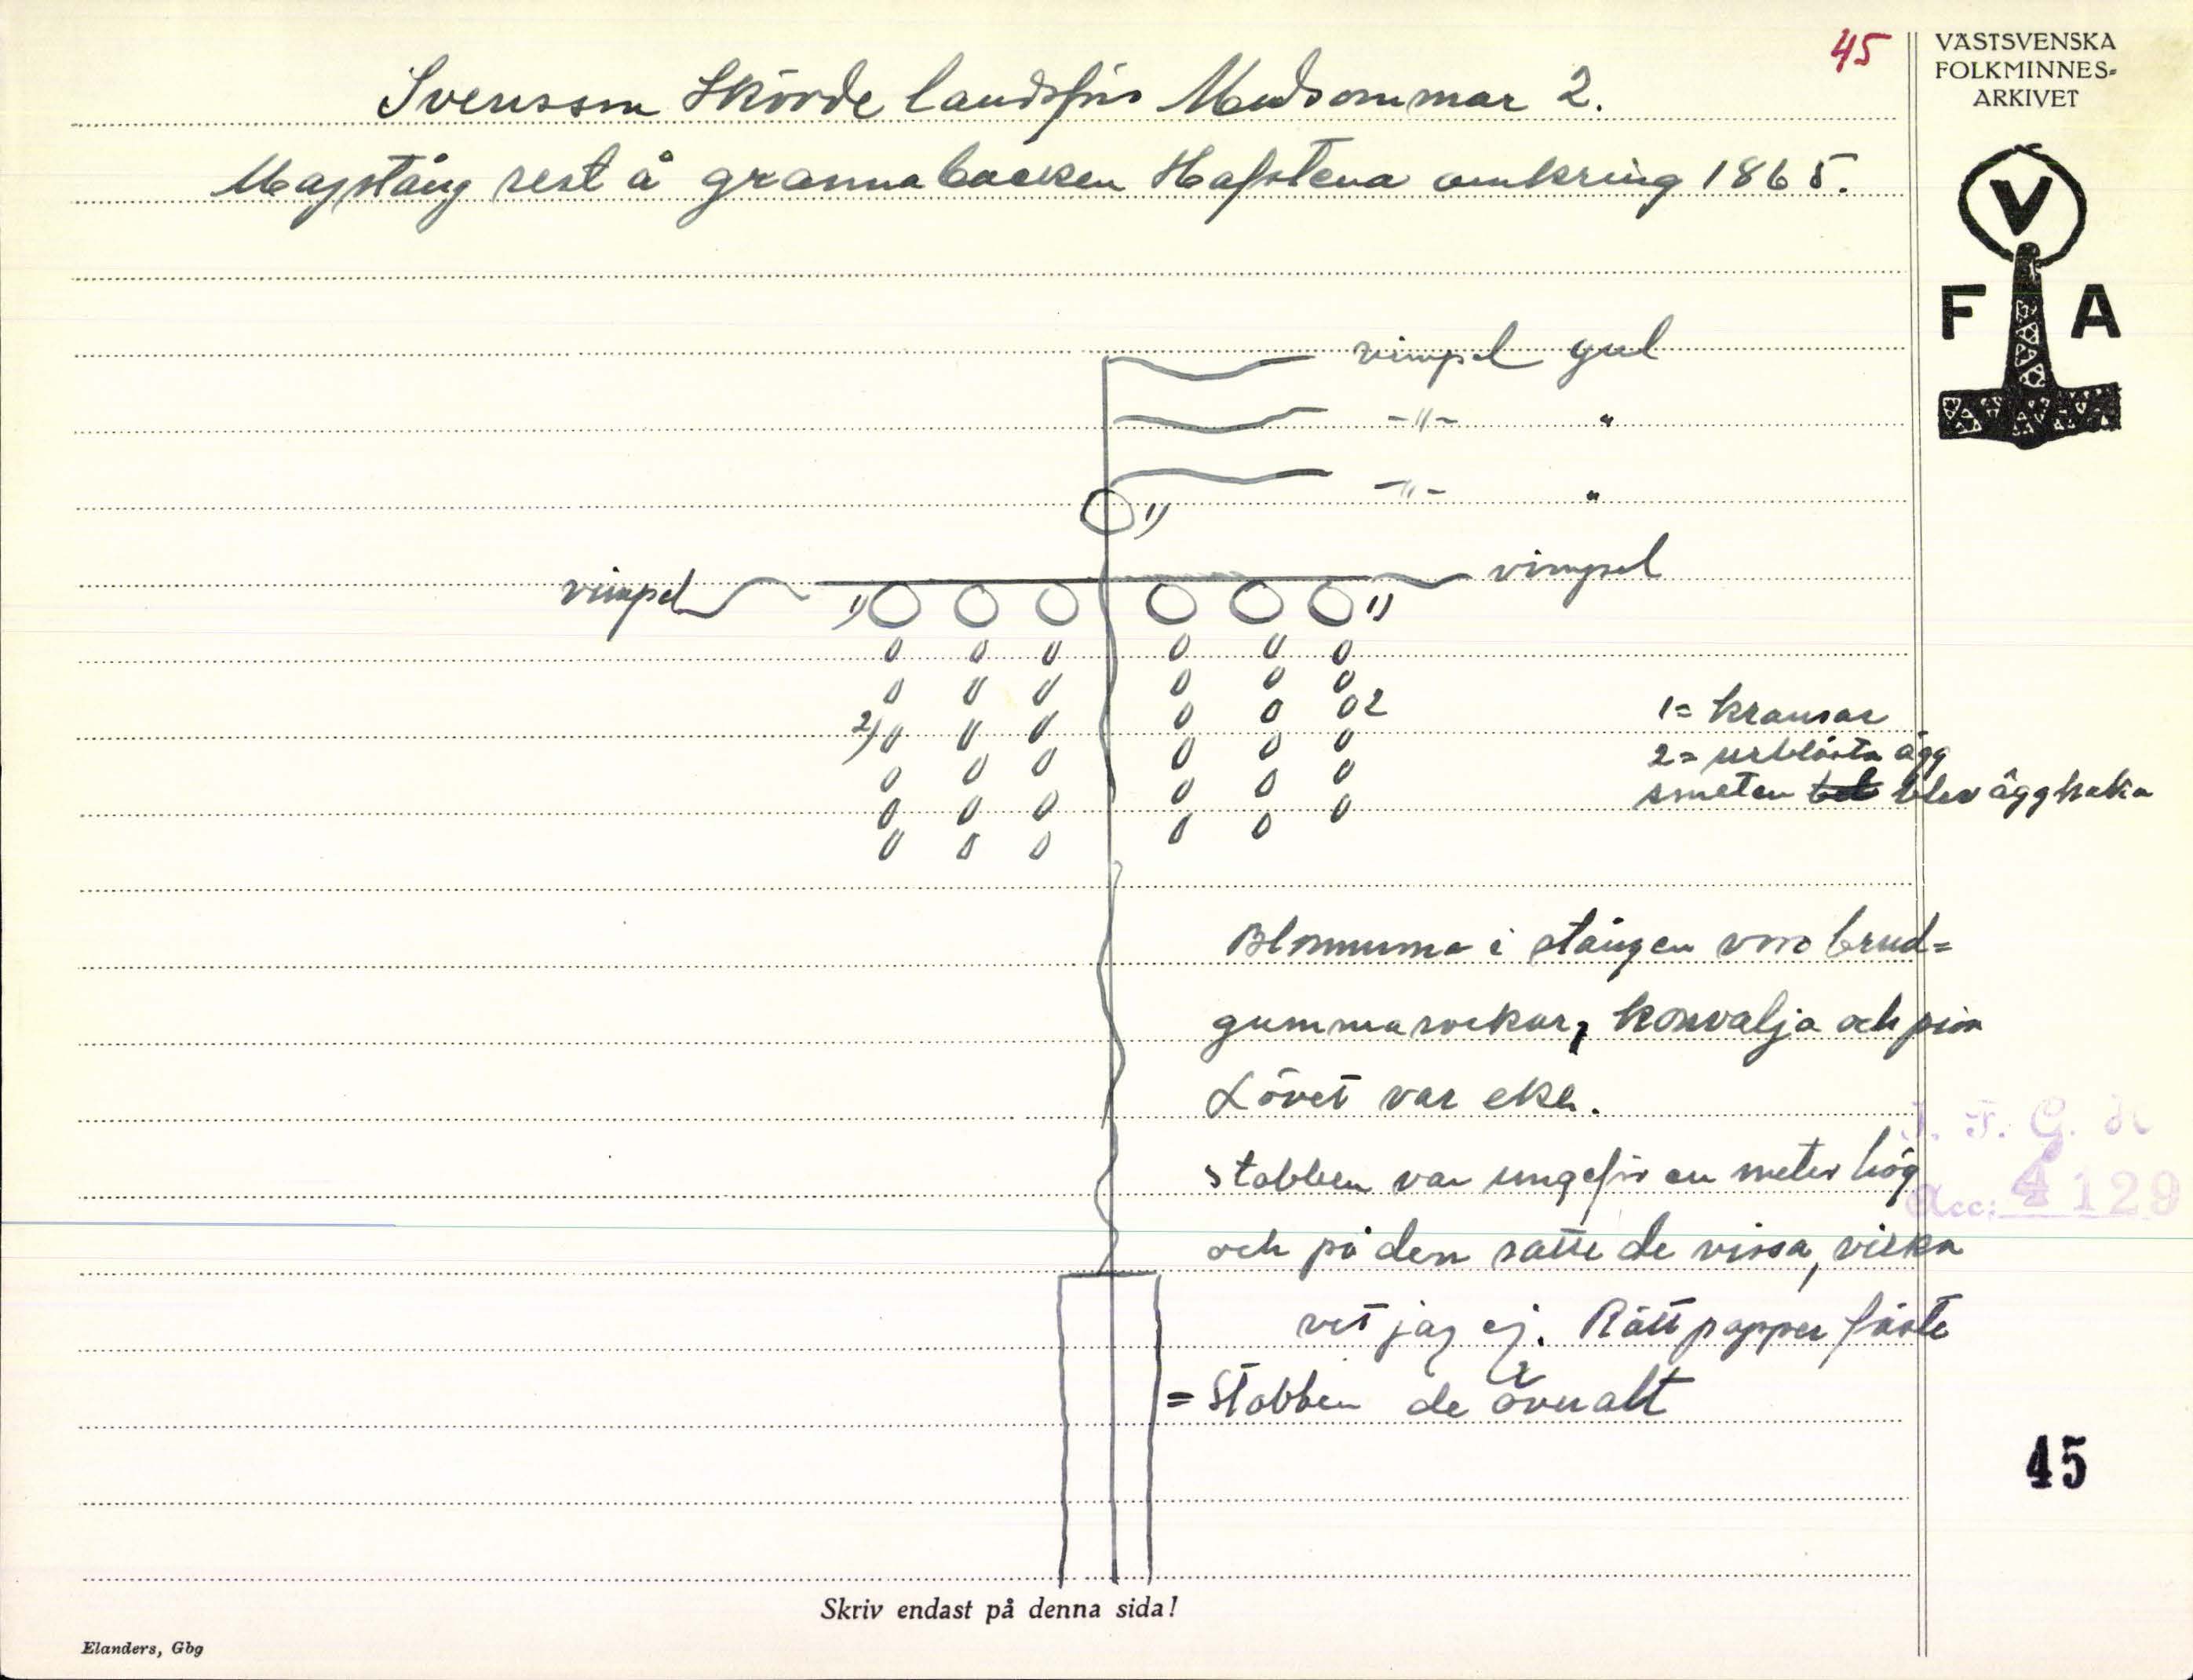 45
VÄSTSVENSKA
FOLKMINNES-
ARKIVET
Svensson Skövde landsförs Midsommar 2.
Majstång rest å grannabacken Hafstena omkring 1865.
V
F A
vimpel gul
-"- "
-"- "
1)
vimpel vimpel
1) 1)
2) 2
1= kransar
2= urblåsta ägg
smeten blev äggkaka
Blommorna i stången voro brud=
gummarockar, konvalja och pion
Lövet var eke.
Stabben var ungefär en meter hög
och på den satte de vissa, vilka
vet jag ej. Rött papper fäste
= Stabben de överallt
I. F. G. H
Acc: 4129
45
Skriv endast på denna sida!
Elanders, Gbg